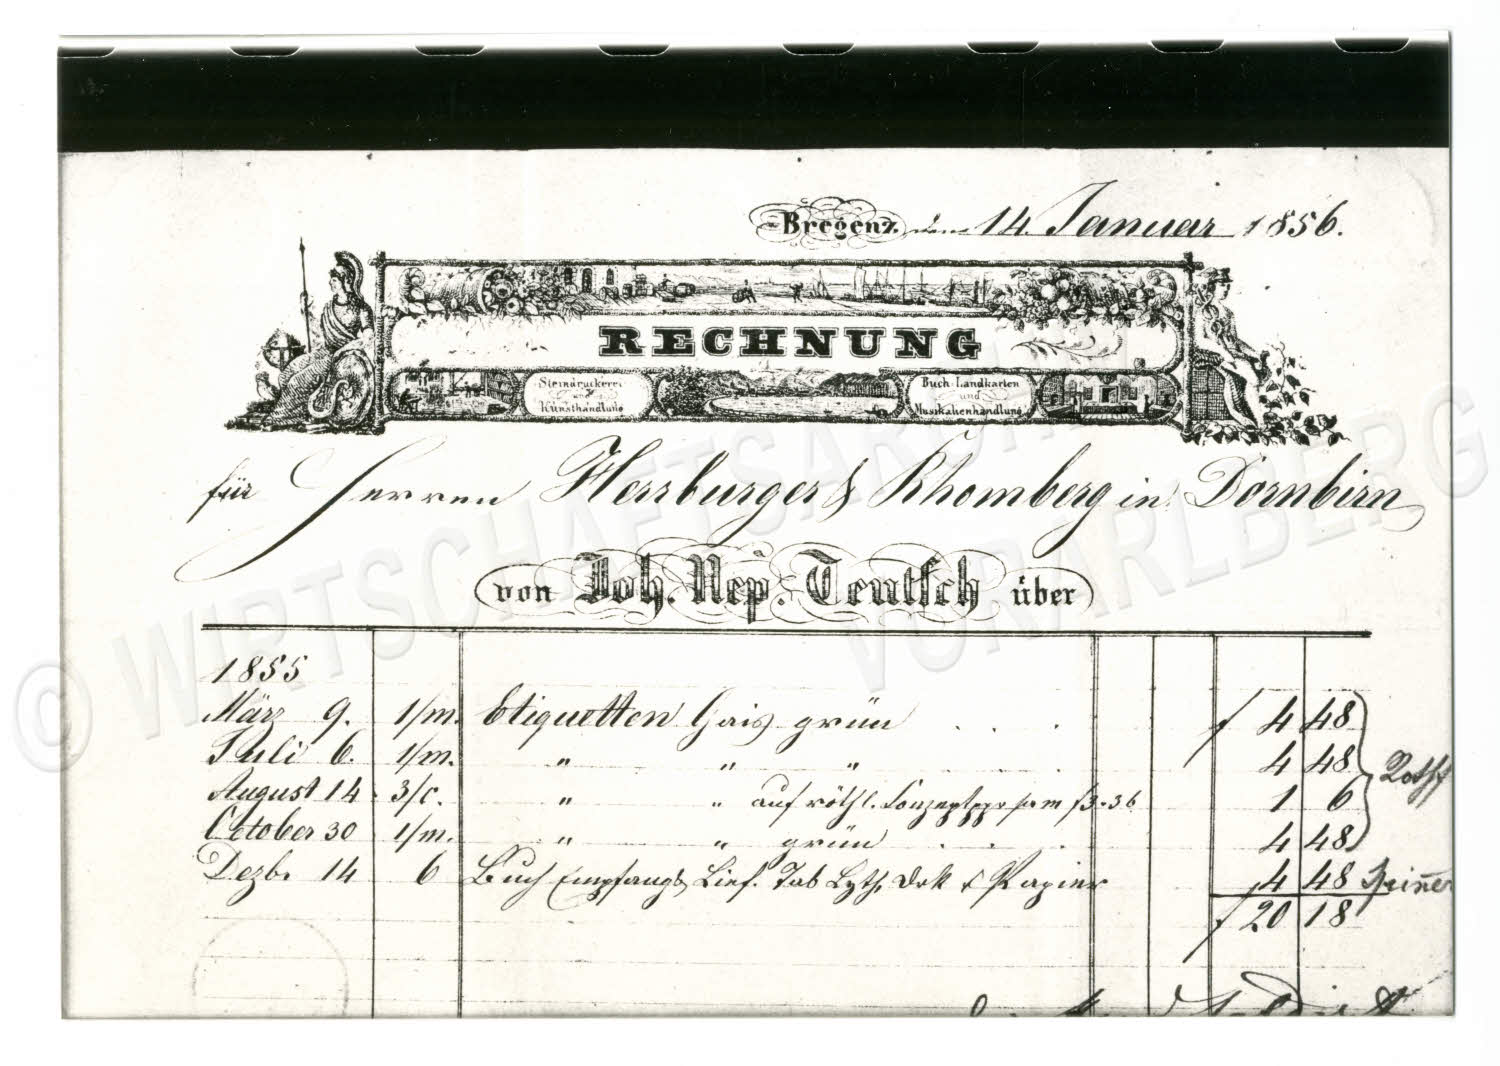 Bregenz, den 14. Januar 1856.
RECHNUNG
Steindruckerei und Kunsthandlung
Buch- Landkarten und Musikalienhandlung
für Herren Herrburger & Rhomberg in Dornbirn
von Joh. Nep. Teutsch über
1855
März 9. 1/m. Etiquetten grün f 4 48
Juli 6. 1/m. " " " 4 48
August 14. 3/c. " " auf röthl. 1 6
October 30 1/m. " " grün 4 48
Dezbr. 14 6 Buch Empfangs Lief. Tab Lyth. Drk & Papier 4 48
f 20 18
© WIRTSCHAFTSARCHIV VORARLBERG